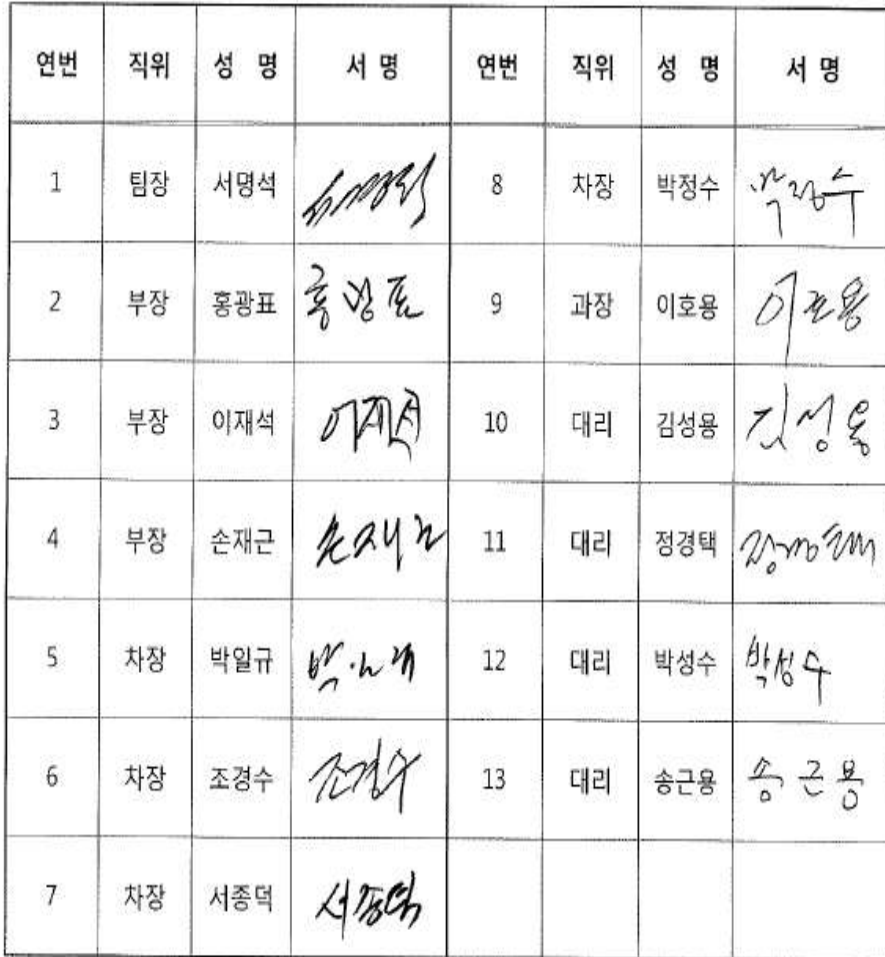 연번 직위 성 명 서 명 연번 직위 성 명 서 명
1 팀장 서명석 서명석 8 차장 박정수 박정수
2 부장 홍광표 홍광표 9 과장 이호용 이호용
3 부장 이재석 이재석 10 대리 김성용 김성용
4 부장 손재근 손재근 11 대리 정경택 정경택
5 차장 박일규 박일규 12 대리 박성수 박성수
6 차장 조경수 조경수 13 대리 송근용 송근용
7 차장 서종덕 서종덕